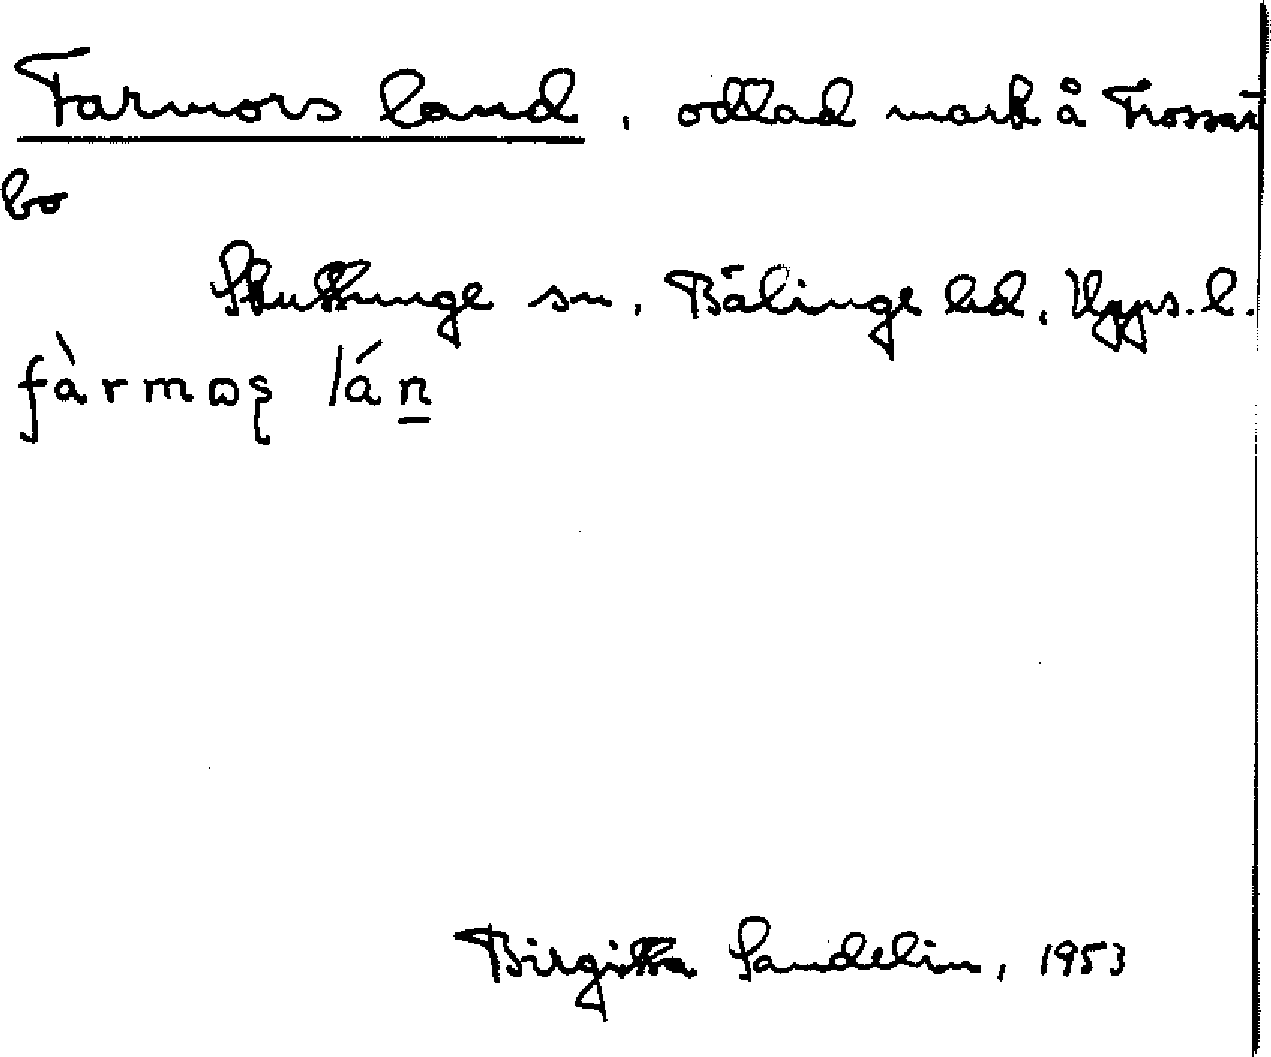 Farmors land, odlad mark å Trossar
bo
Skuttunge sn, Bälinge hd, Upps. l.
fàrmoʂ lán
Birgitta Sandelin, 1953